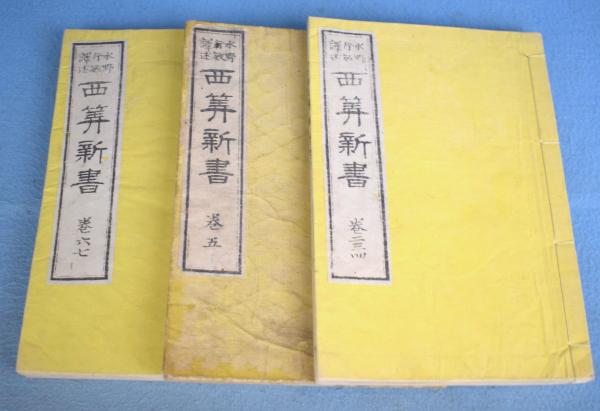 水野
行敏
譯述
西筭新書
卷二三四
水野
行敏
譯述
西筭新書
卷五
水野
行敏
譯述
西筭新書
卷六七